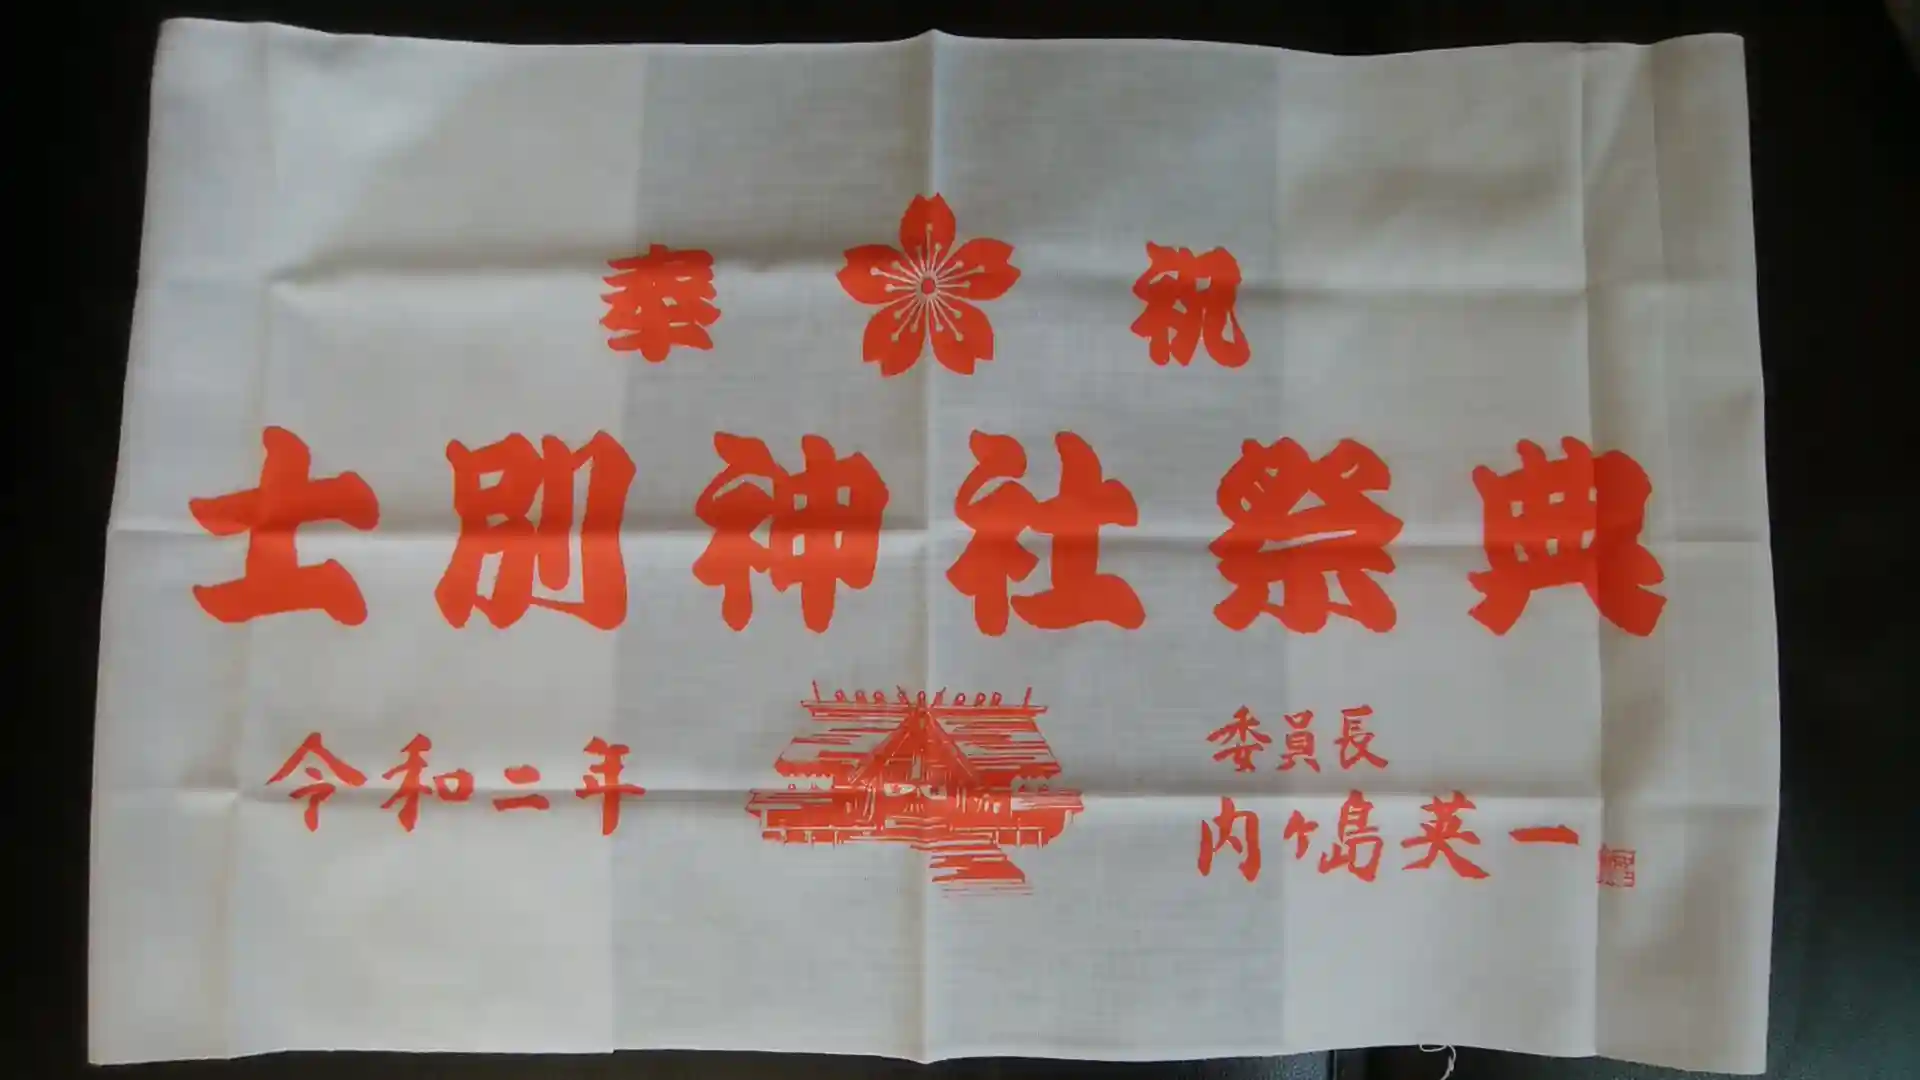 奉 祝
士別神社祭典
令和二年
委員長
内ヶ島英一